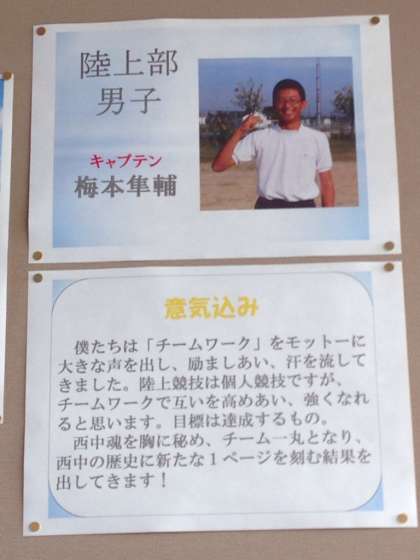 陸上部
男子
キャプテン
梅本隼輔
意気込み
僕たちは「チームワーク」をモットーに
大きな声を出し、励ましあい、汗を流して
きました。陸上競技は個人競技ですが、
チームワークで互いを高めあい、強くなれ
ると思います。目標は達成するもの。
西中魂を胸に秘め、チーム一丸となり、
西中の歴史に新たな１ページを刻む結果を
出してきます！